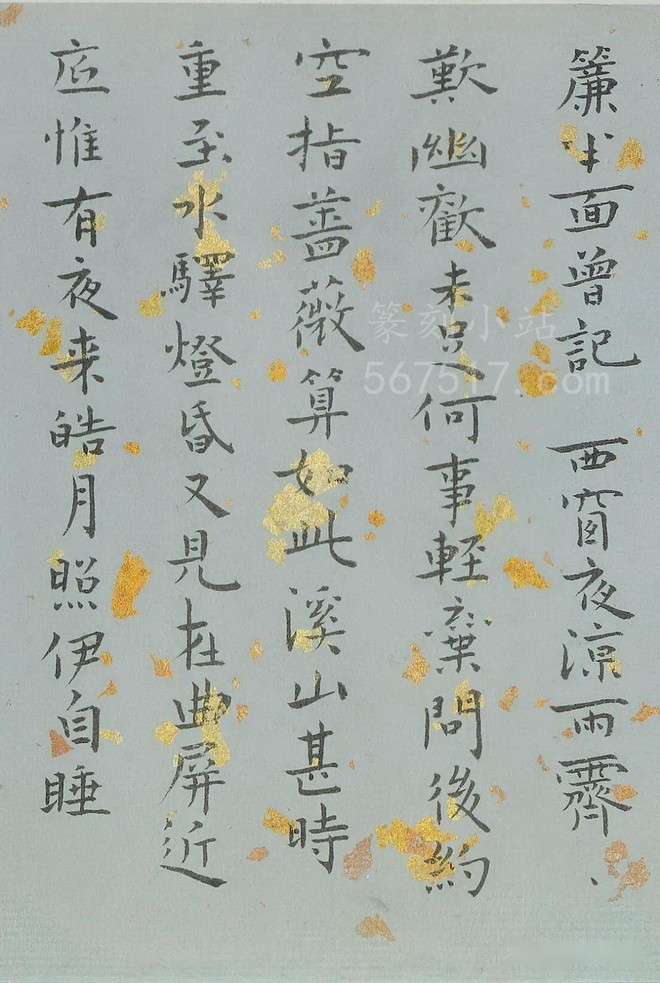 簾半面曾記 西窗夜涼雨霽、
歎幽歡未足何事輕棄問後約
空指薔薇算如此溪山甚時
重至水驛燈昏又見在曲屏近
底惟有夜来皓月照伊自睡
篆刻小站
567517.com